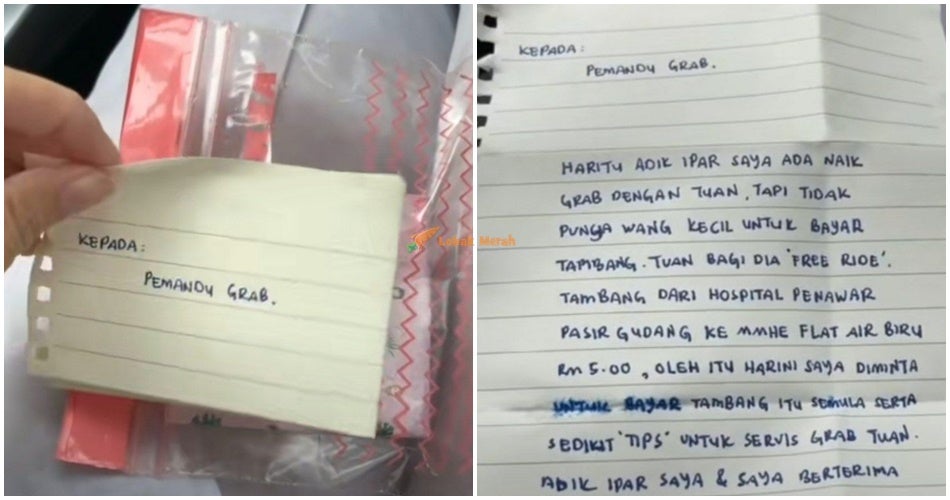 KEPADA:
PEMANDU GRAB.
Lobak Merah
KEPADA:
PEMANDU GRAB.
HARITU ADIK IPAR SAYA ADA NAIK
GRAB DENGAN TUAN, TAPI TIDAK
PUNYA WANG KECIL UNTUK BAYAR
TAMBANG. TUAN BAGI DIA 'FREE RIDE'.
TAMBANG DARI HOSPITAL PENAWAR
PASIR GUDANG KE MMHE FLAT AIR BIRU
RM 5.00, OLEH ITU HARINI SAYA DIMINTA
UNTUK BAYAR TAMBANG ITU SEMULA SERTA
SEDIKIT 'TIPS' UNTUK SERVIS GRAB TUAN.
ADIK IPAR SAYA & SAYA BERTERIMA